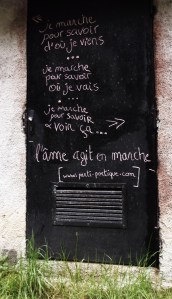 "je marche
pour savoir
d'où je viens
...
je marche
pour savoir
où je vais
...
je marche
pour savoir
& voir ça... "
l'âme agit en marche
[www.parti-poetique.com]